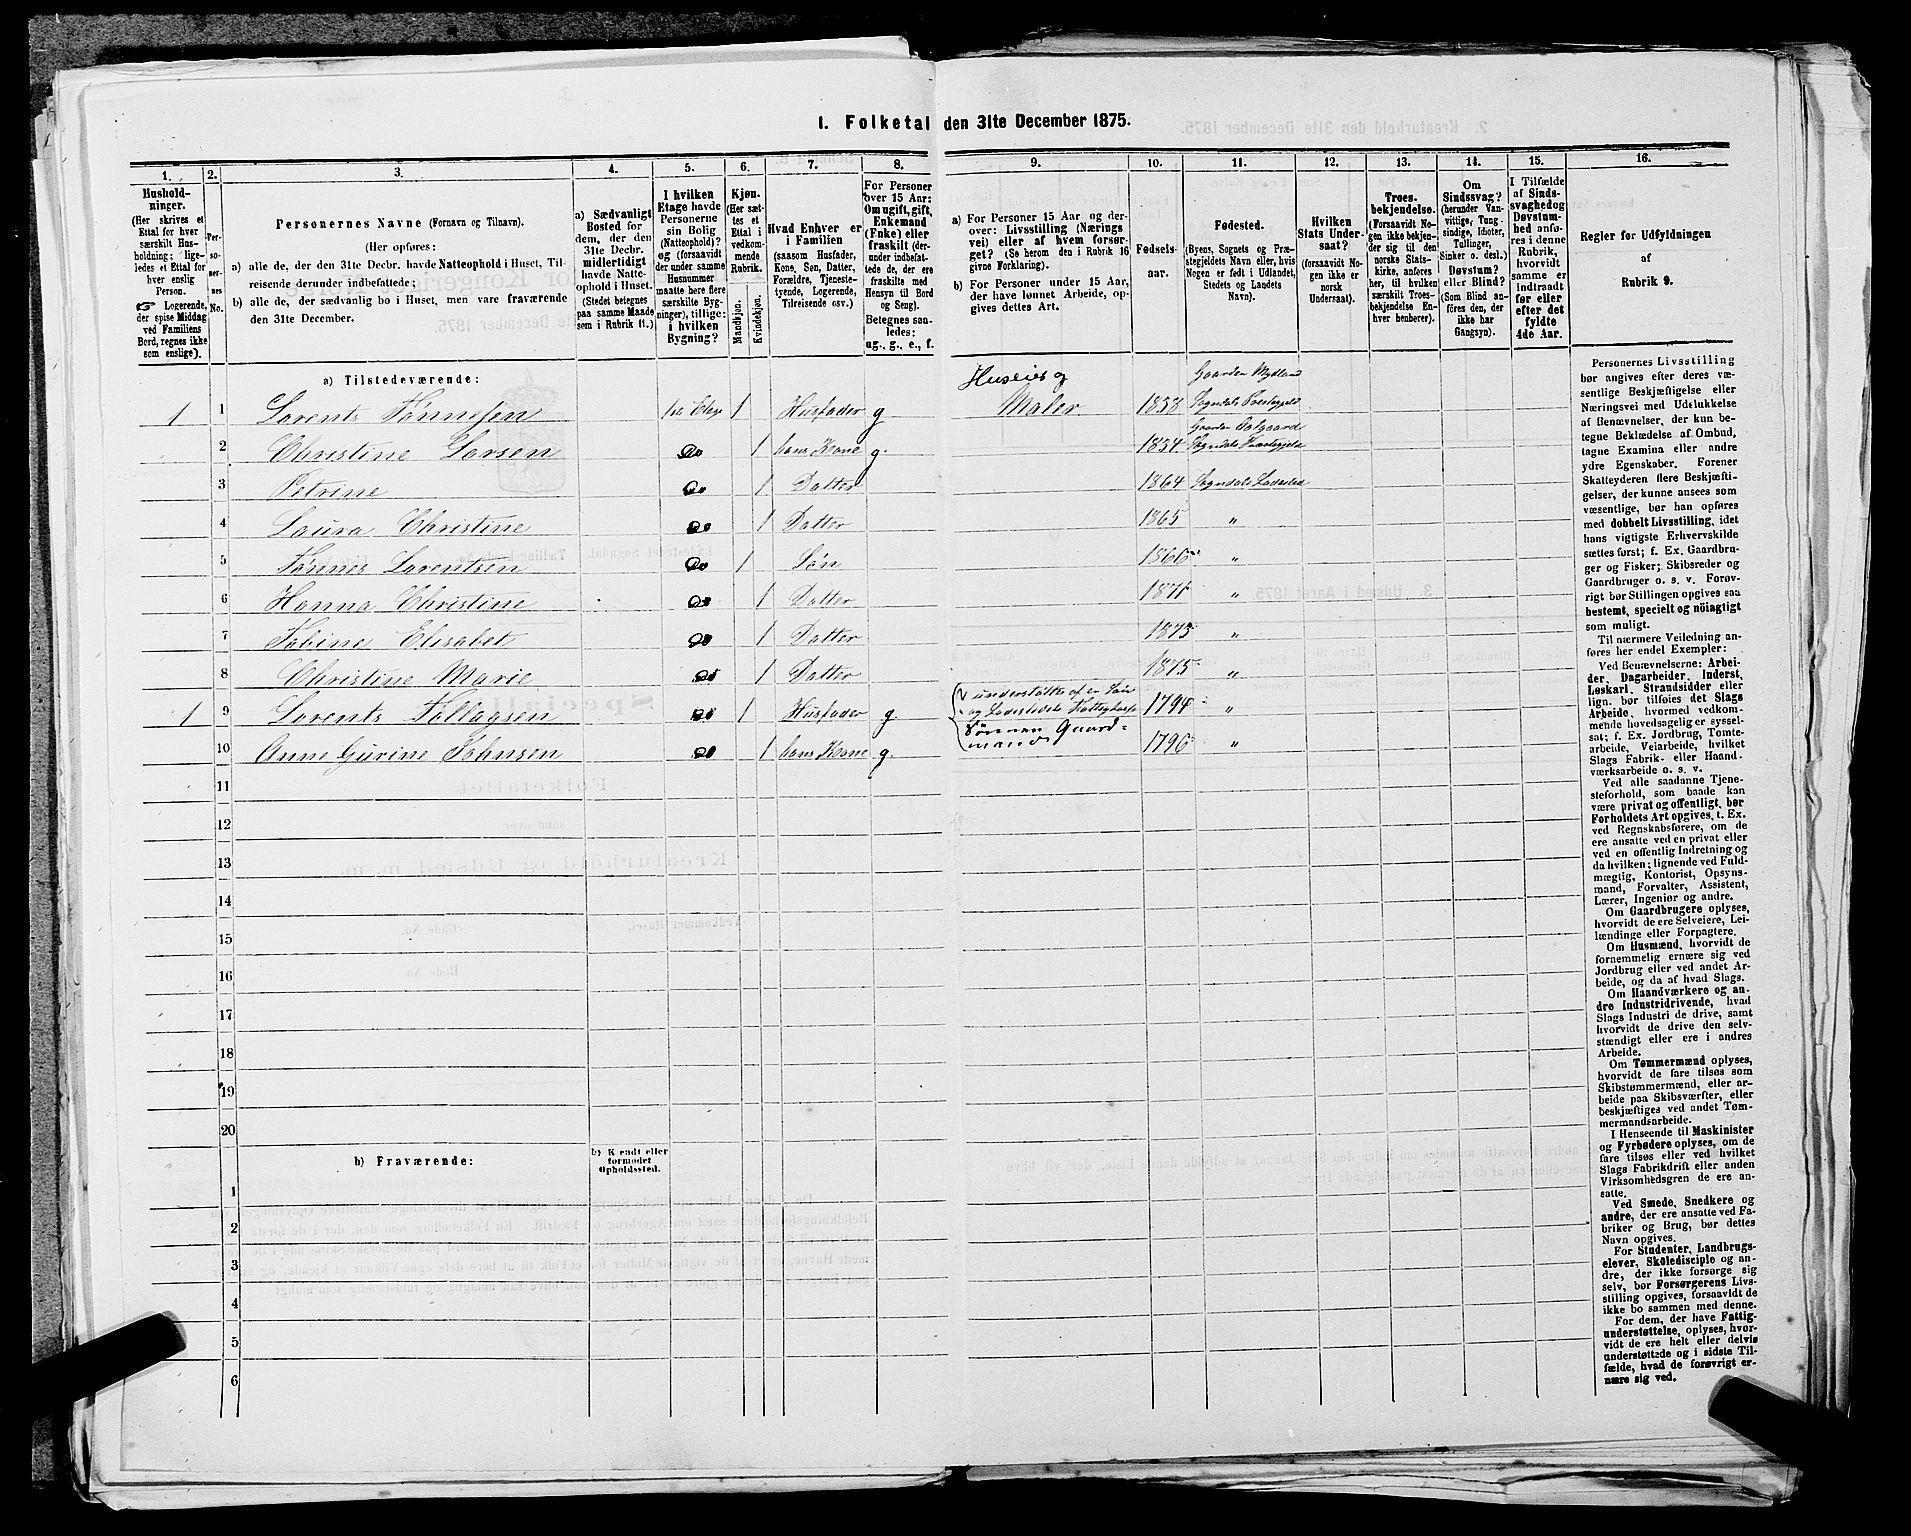 1. Folketal den 31te December 1875.
1. 2. 3. 4. 5. 6. 7. 8. 9. 10. 11. 12. 13. 14. 15. 16.
Hushold-
ninger.
(Her skrives et
Ettal for hver
særskilt Hus-
holdning; lige-
ledes et Ettal for
hver enslig
Person.
☞ Logerende,
der spise Middag
ved Familiens
Bord, regnes ikke
som enslige).
Per-
so-
ner-
nes
No.
Personernes Navne (Fornavn og Tilnavn).
(Her opføres:
a) alle de, der den 31te Decbr. havde Natteophold i Huset, Til-
reisende derunder indbefattede;
b) alle de, der sædvanlig bo i Huset, men vare fraværende
den 31te December.
a) Sædvanligt
Bosted for
dem, der den
31te Decbr.
midlertidigt
havde Natte-
ophold i Huset.
(Stedet betegnes
paa samme Maade
som i Rubrik 11.)
I hvilken
Etage havde
Personerne
sin Bolig
(Natteophold)?
og (forsaavidt
der under samme
Husnummer
maatte være flere
særskilte Byg-
ninger), tillige:
i hvilken
Bygning?
Kjøn.
(Her sæt-
tes et
Ettal i
vedkom-
mende
Rubrik.
Mandkjøn.
Kvindekjøn.
Hvad Enhver er
i Familien
(saasom Husfader,
Kone, Søn, Datter,
Forældre, Tjeneste-
tyende, Logerende,
Tilreisende osv.)
For Personer
over 15 Aar:
Om ugift, gift,
Enkemand
(Enke) eller
fraskilt (der-
under indbefat-
tede de, der ere
fraskilte med
Hensyn til Bord
og Seng).
Betegnes saa-
ledes:
ug., g., e., f.
a) For Personer 15 Aar og der-
over: Livsstilling (Nærings
vei) eller af hvem forsør-
get? (Se herom den i Rubrik 16
givne Forklaring).
b) For Personer under 15 Aar,
der have lønnet Arbeide, op-
gives dettes Art.
Fødsels-
aar.
Fødested.
(Byens, Sognets og Præ-
stegjeldets Navn eller, hvis
Nogen er født i Udlandet,
Stedets og Landets
Navn).
Hvilken
Stats Under-
saat?
(forsaavidt No-
gen ikke er
norsk
Undersaat).
Troes-
bekjendelse.
(Forsaavidt No-
gen ikke bekjen-
der sig til den
norske Stats-
kirke, anføres
her, til hvilken
særskilt Troes-
bekjendelse En-
hver henhører).
Om
Sindssvag?
(herunder Van-
vittige, Tung-
sindige, Idioter,
Tullinger,
Sinker o. desl.)
Døvstum?
eller Blind?
(Som Blind an-
føres den, der
ikke har
Gangsyn).
I Tilfælde
af Sinds-
svaghed og
Døvstum-
hed anfø-
res i denne
Rubrik,
hvorvidt
samme er
indtraadt
før eller
efter det
fyldte
4de Aar.
Regler før Udfyldningen
af
Rubrik 9.
a) Tilstedeværende:
Huseier og Gaarden Mydland
1 1 Lorents Tønnesen 1ste Etage 1 Husfader g Maler 1838 Sogndals Præstegjeld
Gaarden Aalgaard
2 Christine Larsen Do 1 hans Kone g. 1834 Sogndals Præstegjeld
3 Petrine Do 1 Datter 1864 Sogndals Ladested
4 Laura Christine Do 1 Datter 1865 "
5 Tønnes Lorentsen Do 1 Søn 1866 "
6 Hanna Christine Do 1 Datter 1871 "
7 Tobine Elisabet Do 1 Datter 1873 "
8 Christine Marie Do 1 Datter 1875 "
understøttes af en Søn
1 9 Lorents Tollagsen Do 1 Husfader g og Ladestedets Fattigkasse 1794 "
Sønnen Gaard-
10 Anne Gurine Johnsen Do 1 hans Kone g. mand 1796 "
11
12
13
14
15
16
17
18
19
20
b) Fraværende: b) Kjendt eller
formodet
Opholdssted.
1
2
3
4
5
6
Personernes Livsstilling
bør angives efter deres væ-
sentlige Beskjæftigelse eller
Næringsvei med Udelukkelse
af Benævnelser, der kun be-
tegne Beklædelse af Ombud,
tagne Examina eller andre
ydre Egenskaber. Forener
Skatteyderen flere Beskjæfti-
gelser, der kunne ansees som
væsentlige, bør han opføres
med dobbelt Livsstilling, idet
hans vigtigste Erhvervskilde
sættes først; f. Ex. Gaardbru-
ger og Fisker; Skibsreder og
Gaardbruger o. s. v. Forøv-
rigt bør Stillingen opgives saa
bestemt, specielt og nøiagtigt
som muligt.
Til nærmere Veiledning an-
føres her endel Exempler:
Ved Benævnelserne: Arbei-
der, Dagarbeider, Inderst,
Løskarl, Strandsidder eller
lign. bør tilføies det Slags
Arbeide, hvormed vedkom-
mende hovedsagelig er syssel-
sat; f. Ex. Jordbrug, Tomte-
arbeide, Veiarbeide, hvilket
Slags Fabrik- eller Haand-
værksarbeide o. s. v.
Ved alle saadanne Tjene-
steforhold, som baade kan
være privat og offentligt, bør
Forholdets Art opgives, t. Ex.
ved Regnskabsførere, om de
ere ansatte ved en privat eller
ved en offentlig Indretning og
da hvilken; lignende ved Fuld-
mægtig, Kontorist, Opsyns-
mand, Forvalter, Assistent,
Lærer, Ingeniør og andre.
Om Gaardbrugere oplyses,
hvorvidt de ere Selveiere, Lei-
lændinge eller Forpagtere.
Om Husmænd, hvorvidt de
fornemmelig ernære sig ved
Jordbrug eller ved andet Ar-
beide, og da af hvad Slags.
Om Haandværkere og an-
dre Industridrivende, hvad
Slags Industri de drive, samt
hvorvidt de drive den selv-
stændigt eller ere i andres
Arbeide.
Om Tømmermænd oplyses,
hvorvidt de fare tilsøs som
Skibstømmermænd, eller ar-
beide paa Skibsværfter, eller
beskjæftiges ved andet Tøm-
mermandsarbeide.
I Henseende til Maskinister
og Fyrbødere oplyses, om de
fare tilsøs eller ved hvilket
Slags Fabrikdrift eller anden
Virksomhedsgren de ere an-
satte.
Ved Smede, Snedkere og
andre, der ere ansatte ved Fa-
briker og Brug, bør dettes
Navn opgives.
For Studenter, Landbrugs-
elever, Skoledisciple og an-
dre, der ikke forsørge sig
selv, bør Forsørgerens Livs-
stilling opgives, forsaavidt de
ikke bo sammen med denne.
For dem, der have Fattig-
understøttelse, oplyses, hvor-
vidt de ere helt eller delvis
understøttede og i sidste Til-
fælde, hvad de forøvrigt er-
nære sig ved.